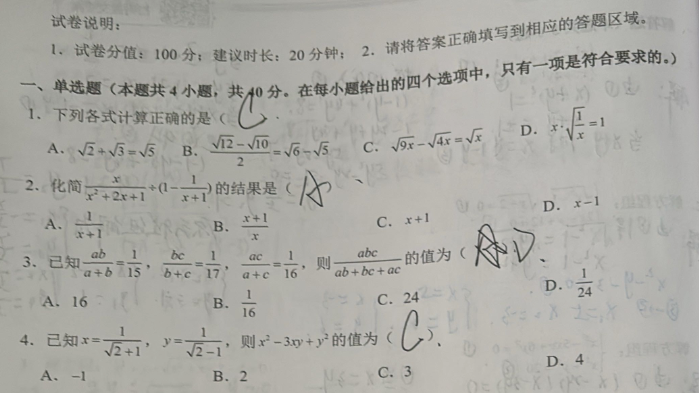 试卷说明：
1. 试卷分值：100 分；建议时长：20 分钟； 2. 请将答案正确填写到相应的答题区域。
一、单选题（本题共 4 小题，共 40 分。在每小题给出的四个选项中，只有一项是符合要求的。）
1. 下列各式计算正确的是（ C
A. √2+√3=√5 B. (√12-√10)/2=√6-√5 C. √9x-√4x=√x D. x·√(1/x)=1
2. 化简 x/(x²+2x+1)÷(1-1/(x+1)) 的结果是（ A
A. 1/(x+1) B. (x+1)/x C. x+1 D. x-1
3. 已知 ab/(a+b)=1/15， bc/(b+c)=1/17， ac/(a+c)=1/16，则 abc/(ab+bc+ac) 的值为（ D
A. 16 B. 1/16 C. 24 D. 1/24
4. 已知 x=1/(√2+1)， y=1/(√2-1)，则 x²-3xy+y² 的值为（ C ）
A. -1 B. 2 C. 3 D. 4